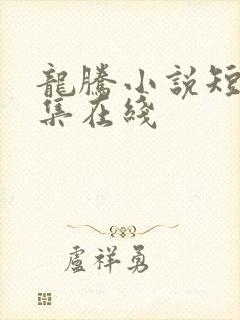 龍騰小說短
集在綫
盧祥勇